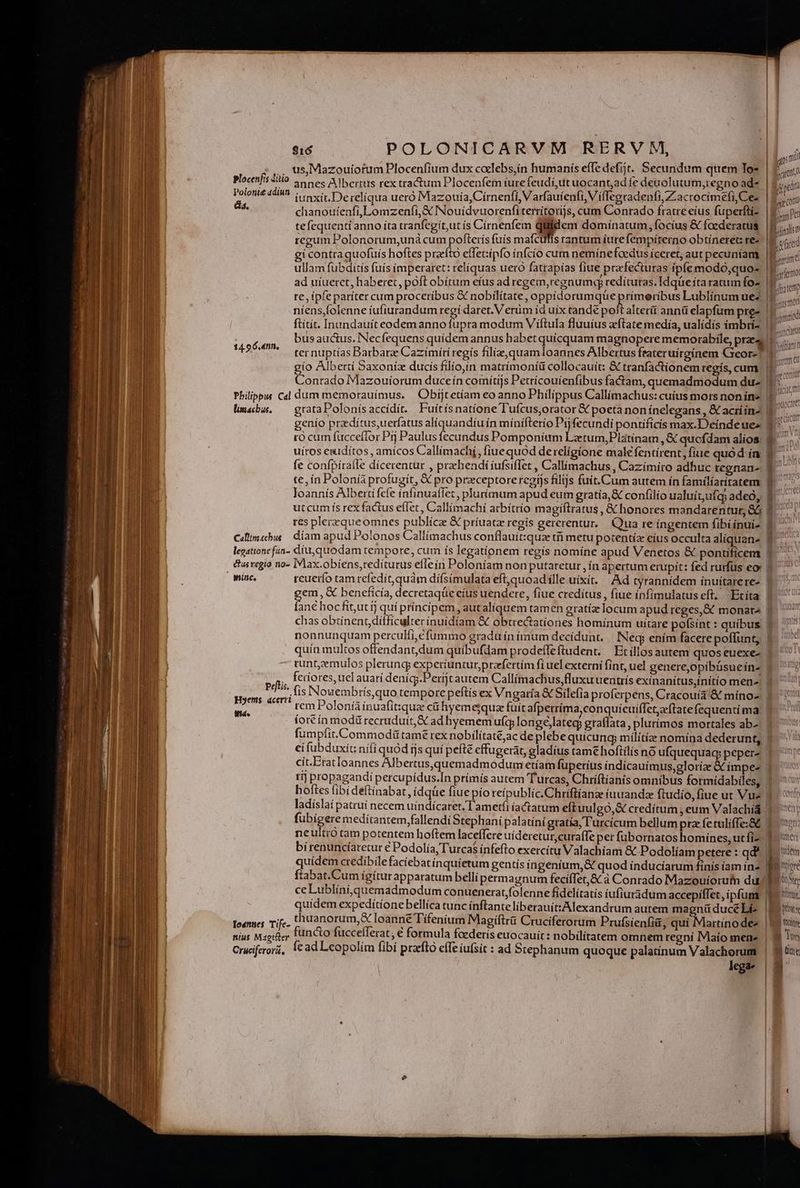 816 POLONICARVM RERVM,
us, Mazouiorum Plocensium dux cœlebs, in humanis esse desijt. Secundum quem Io-
Plocensis ditio
annes Albertus rex tractum Plocensem iure feudi, ut uocant, ad se deuolutum, regno ad-
Poloniæ adiun
iunxit. De reliqua ueró Mazouia, Cirnensi, Varsauiensi, Vissegradensi, Zacrocimēsi, Ce-
cta.
chanouiensi, Lomzensi, & Nouidvuorensi territorijs, cum Conrado fratre eius superstí-
te sequenti anno ita transegit, ut is Cirnensem quidem dominatum, socius & fœderatus
regum Polonorum, unà cum posteris suis masculis tantum iure sempiterno obtineret: re-
gi contra quosuis hostes præsto esset: ipso inscio cum nemine fœdus iceret, aut pecuniam
ullam subditis suis imperaret: reliquas ueró satrapias siue præfecturas ipse modò, quo-
ad uiueret, haberet, póst obitum eius ad regem, regnumq; redituras. Idqúe ita ratum fo-
re, ipse pariter cum proceribus & nobilitate, oppidorumqúe primoribus Lublinum ue-
niens, solenne iusiurandum regi daret. Verùm id uix tandē post alterū annū elapsum præ-
stitit. Inundauit eodem anno supra modum Vistula fluuius æstate media, ualidis imbri-
bus auctus. Nec sequens quidem annus habet quicquam magnopere memorabile, præ-
1496. ann.
ter nuptias Barbaræ Cazimiri regis filiæ, quam Ioannes Albertus frater uirginem Geor-
gio Alberti Saxoniæ ducis filio, in matrimoniū collocauit: & transactionem regis, cum
Conrado Mazouiorum duce in comitijs Petricouiensibus factam, quemadmodum du-
Philippus Cal
dum memorauimus. Obijt etiam eo anno Philippus Callimachus: cuius mors non in-
limachus.
grata Polonis accidit. Fuit is natione Tuscus, orator & poeta non inelegans, & acri in-
genio præditus, uersatus aliquandiu in ministerio Pij secundi pontificis max. Deinde ue-
rò cum successor Pij Paulus secundus Pomponium Lætum, Platinam, & quosdam alios
uiros eruditos, amicos Callimachi, siue quòd de religione malè sentirent, siue quòd in
se conspirasse dicerentur, prehendi iussisset, Callimachus, Cazimiro adhuc regnan-
te, in Poloniā profugit, & pro præceptore regijs filijs fuit. Cum autem in familiaritatem
Ioannis Alberti sese insinuasset, plurimum apud eum gratia, & consilio ualuit, usq; adeò,
ut cum is rex factus esset, Callimachi arbitrio magistratus, & honores mandarentur, &
res pleræque omnes publicæ & priuatæ regis gererentur. Qua re ingentem sibi inui-
Callimachus
diam apud Polonos Callimachus conflauit: quæ tñ metu potentiæ eius occulta aliquan-
legatione fun-
diu, quodam tempore, cum is legationem regis nomine apud Venetos & pontificem
ctus regio no-
Max. obiens, rediturus esse in Poloniam non putaretur, in apertum erupit: sed rursus eo
mine.
reuerso tam resedit, quàm dissimulata est, quoad ille uixit. Ad tyrannidem inuitare re-
gem, & beneficia, decretaqúe eius uendere, siue creditus, siue insimulatus est. Et ita
sanè hoc fit, ut ij qui principem, aut aliquem tamen gratiæ locum apud reges, & monar-
chas obtinent, difficulter inuidiam & obtrectationes hominum uitare possint: quibus
nonnunquam perculsi, è summo gradu in imum decidunt. Neq; enim facere possunt,
quin multos offendant, dum quibusdam prodesse student. Et illos autem quos euexe-
runt, æmulos plerunq; experiuntur, præsertim si uel externi sint, uel genere, opibúsue in-
feriores, uel auari deniq;. Perijt autem Callimachus, fluxu uentris exinanitus, initio men-
Pestis.
sis Nouembris, quo tempore pestis ex Vngaria & Silesia proserpens, Cracouiā & mino-
Hyems acerri
rem Poloniā inuasit: quæ cū hyeme, quæ fuit asperrima, conquieuisset, æstate sequenti ma
ma.
iorē in modū recruduit, & ad hyemem usq; longè, lateq; grassata, plurimos mortales ab-
sumpsit. Commodū tamē rex nobilitatē, ac de plebe quicunq; militiæ nomina dederunt,
ei subduxit: nisi quòd ijs qui pestē effugerāt, gladius tamē hostilis nō usquequaq; peper-
cit. Erat Ioannes Albertus, quemadmodum etiam superius indicauimus, gloriæ & impe-
rij propagandi percupidus. In primis autem Turcas, Christianis omnibus formidabiles,
hostes sibi destinabat, idqúe siue pio reipublic. Christianæ iuuandæ studio, siue ut Vu-
ladislai patrui necem uindicaret. Tametsi iactatum est uulgò, & creditum, eum Valachiā
subigere meditantem, fallendi Stephani palatini gratia, Turcicum bellum præ se tulisse: &
ne ultrò tam potentem hostem lacessere uideretur, curasse per subornatos homines, ut si-
bi renunciaretur è Podolia, Turcas infesto exercitu Valachiam & Podoliam petere: qd'
quidem credibile faciebat inquietum gentis ingenium, & quod induciarum finis iam in-
stabat. Cum igitur apparatum belli permagnum fecisset, & à Conrado Mazouiorum du
ce Lublini, quemadmodum conuenerat, solenne fidelitatis iusiurādum accepisset, ipsum
quidem expeditione bellica tunc instante liberauit: Alexandrum autem magnū ducē Li-
Ioannes Tife-
thuanorum, & Ioannē Tifenium Magistrū Cruciferorum Prussiensiū, qui Martino de-
nius Magister
functo successerat, è formula fœderis euocauit: nobilitatem omnem regni Maio mense
Cruciferorū,
se ad Leopolim sibi præsto esse iussit: ad Stephanum quoque palatinum Valachorum
lega-